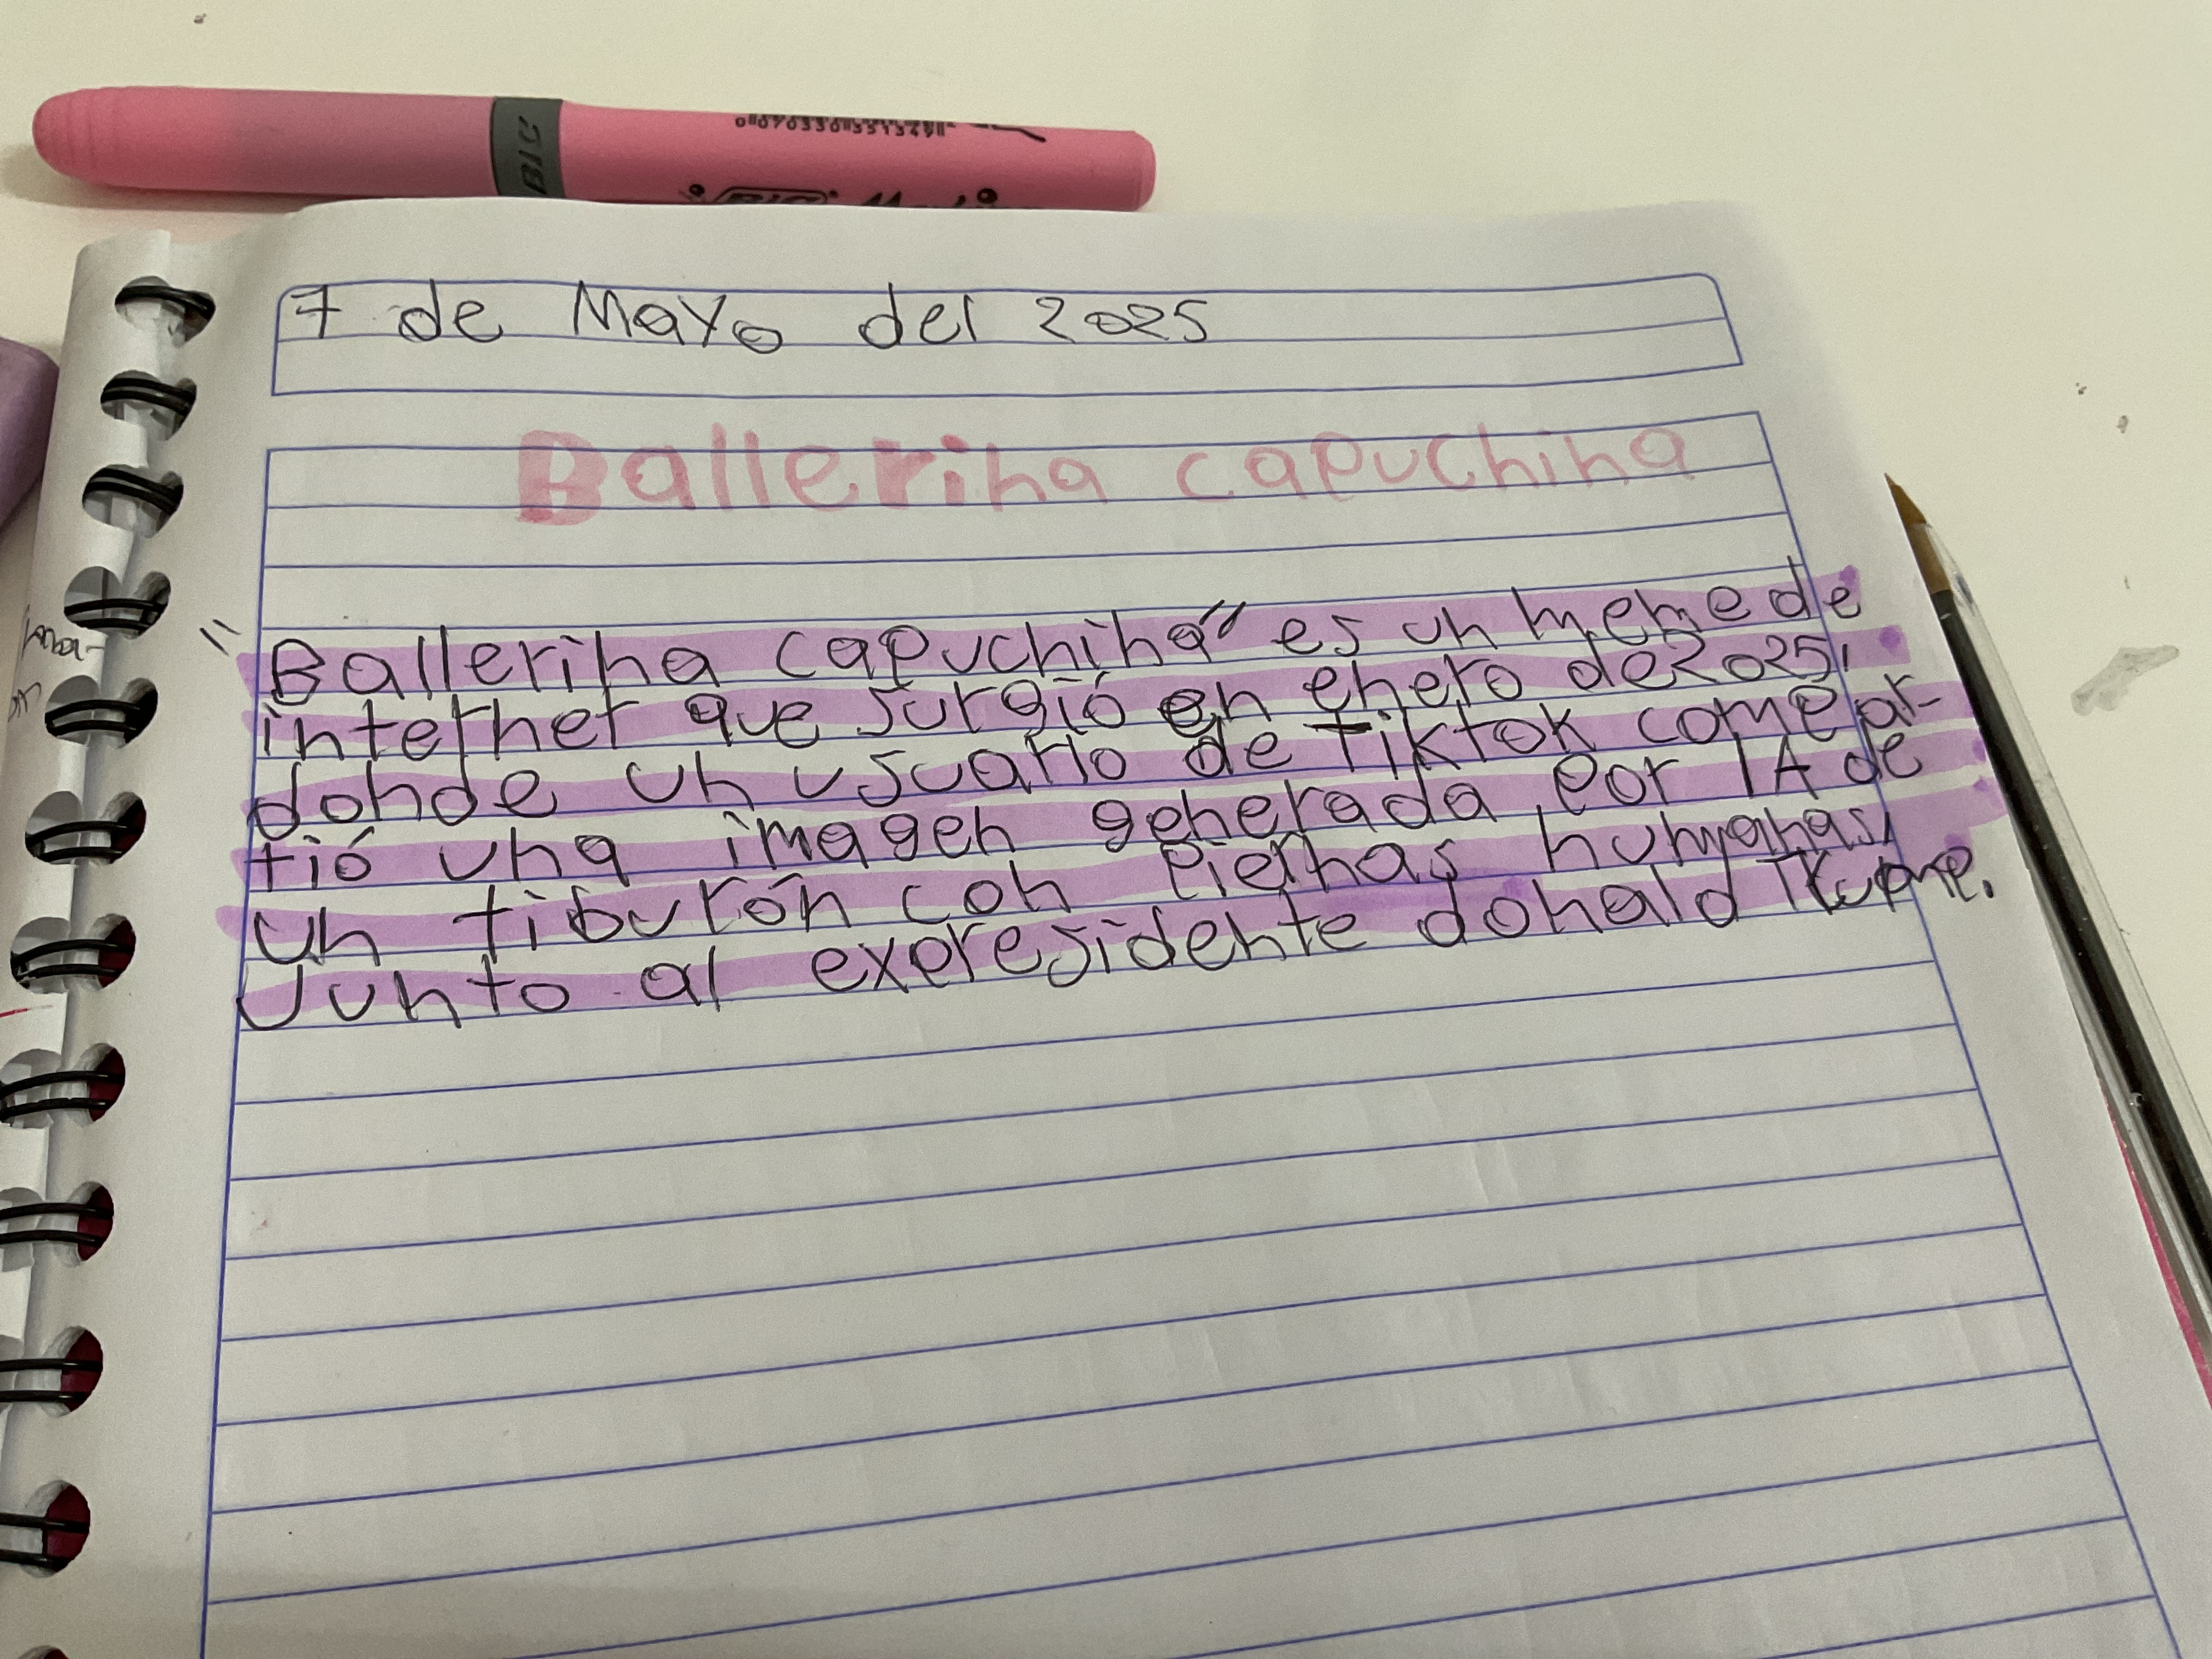 BIC
0 70330 35134
BIC
7 de Mayo del 2025
Ballerina capuchina
"Ballerina capuchina" es un meme de
internet que surgió en enero de 2025,
donde un usuario de Tiktok compar-
tió una imagen generada por IA de
un tiburón con piernas humanas,
Junto al expresidente donald Trump.